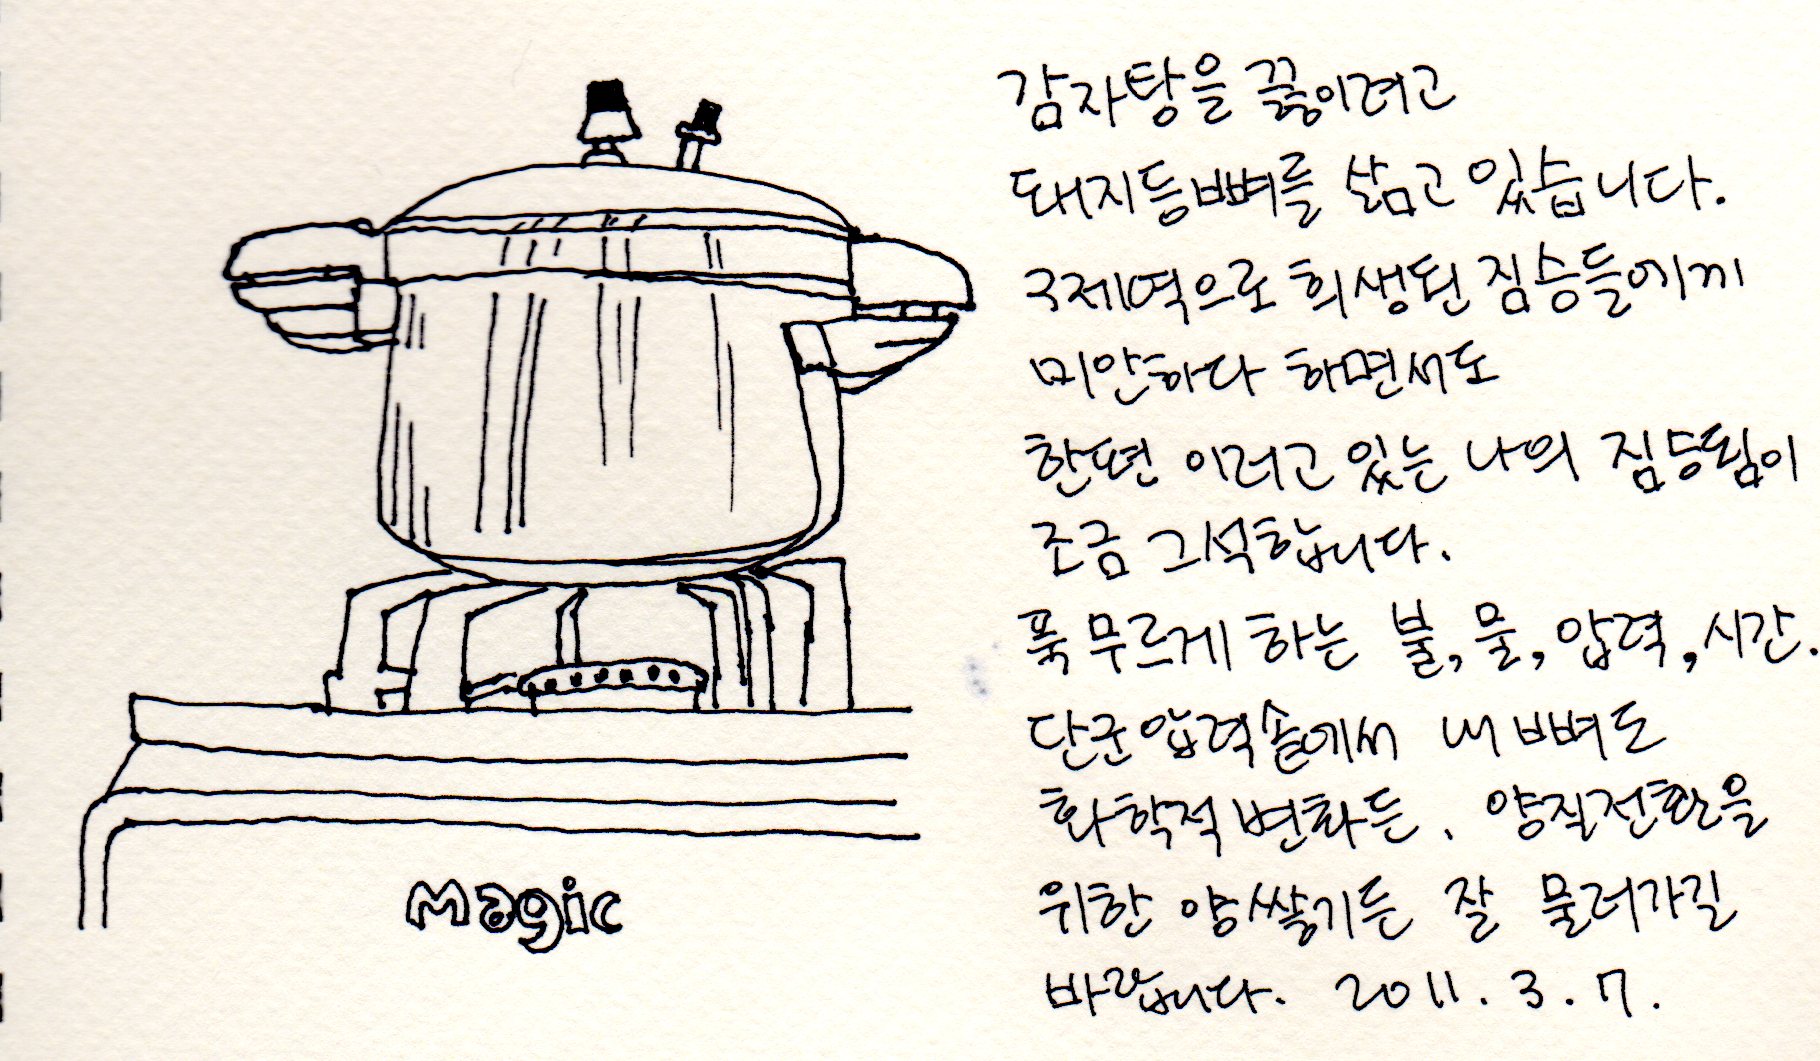 감자탕을 끓이려고
돼지등뼈를 삶고 있습니다.
구제역으로 희생된 짐승들에게
미안하다 하면서도
한편 이러고 있는 나의 짐승됨이
조금 그석합니다.
푹 무르게 하는 불, 물, 압력, 시간.
단군압력솥에서 내 뼈도
화학적 변화든, 양질전환을
위한 양쌓기든 잘 물러가길
바랍니다. 2011. 3. 7.
Magic